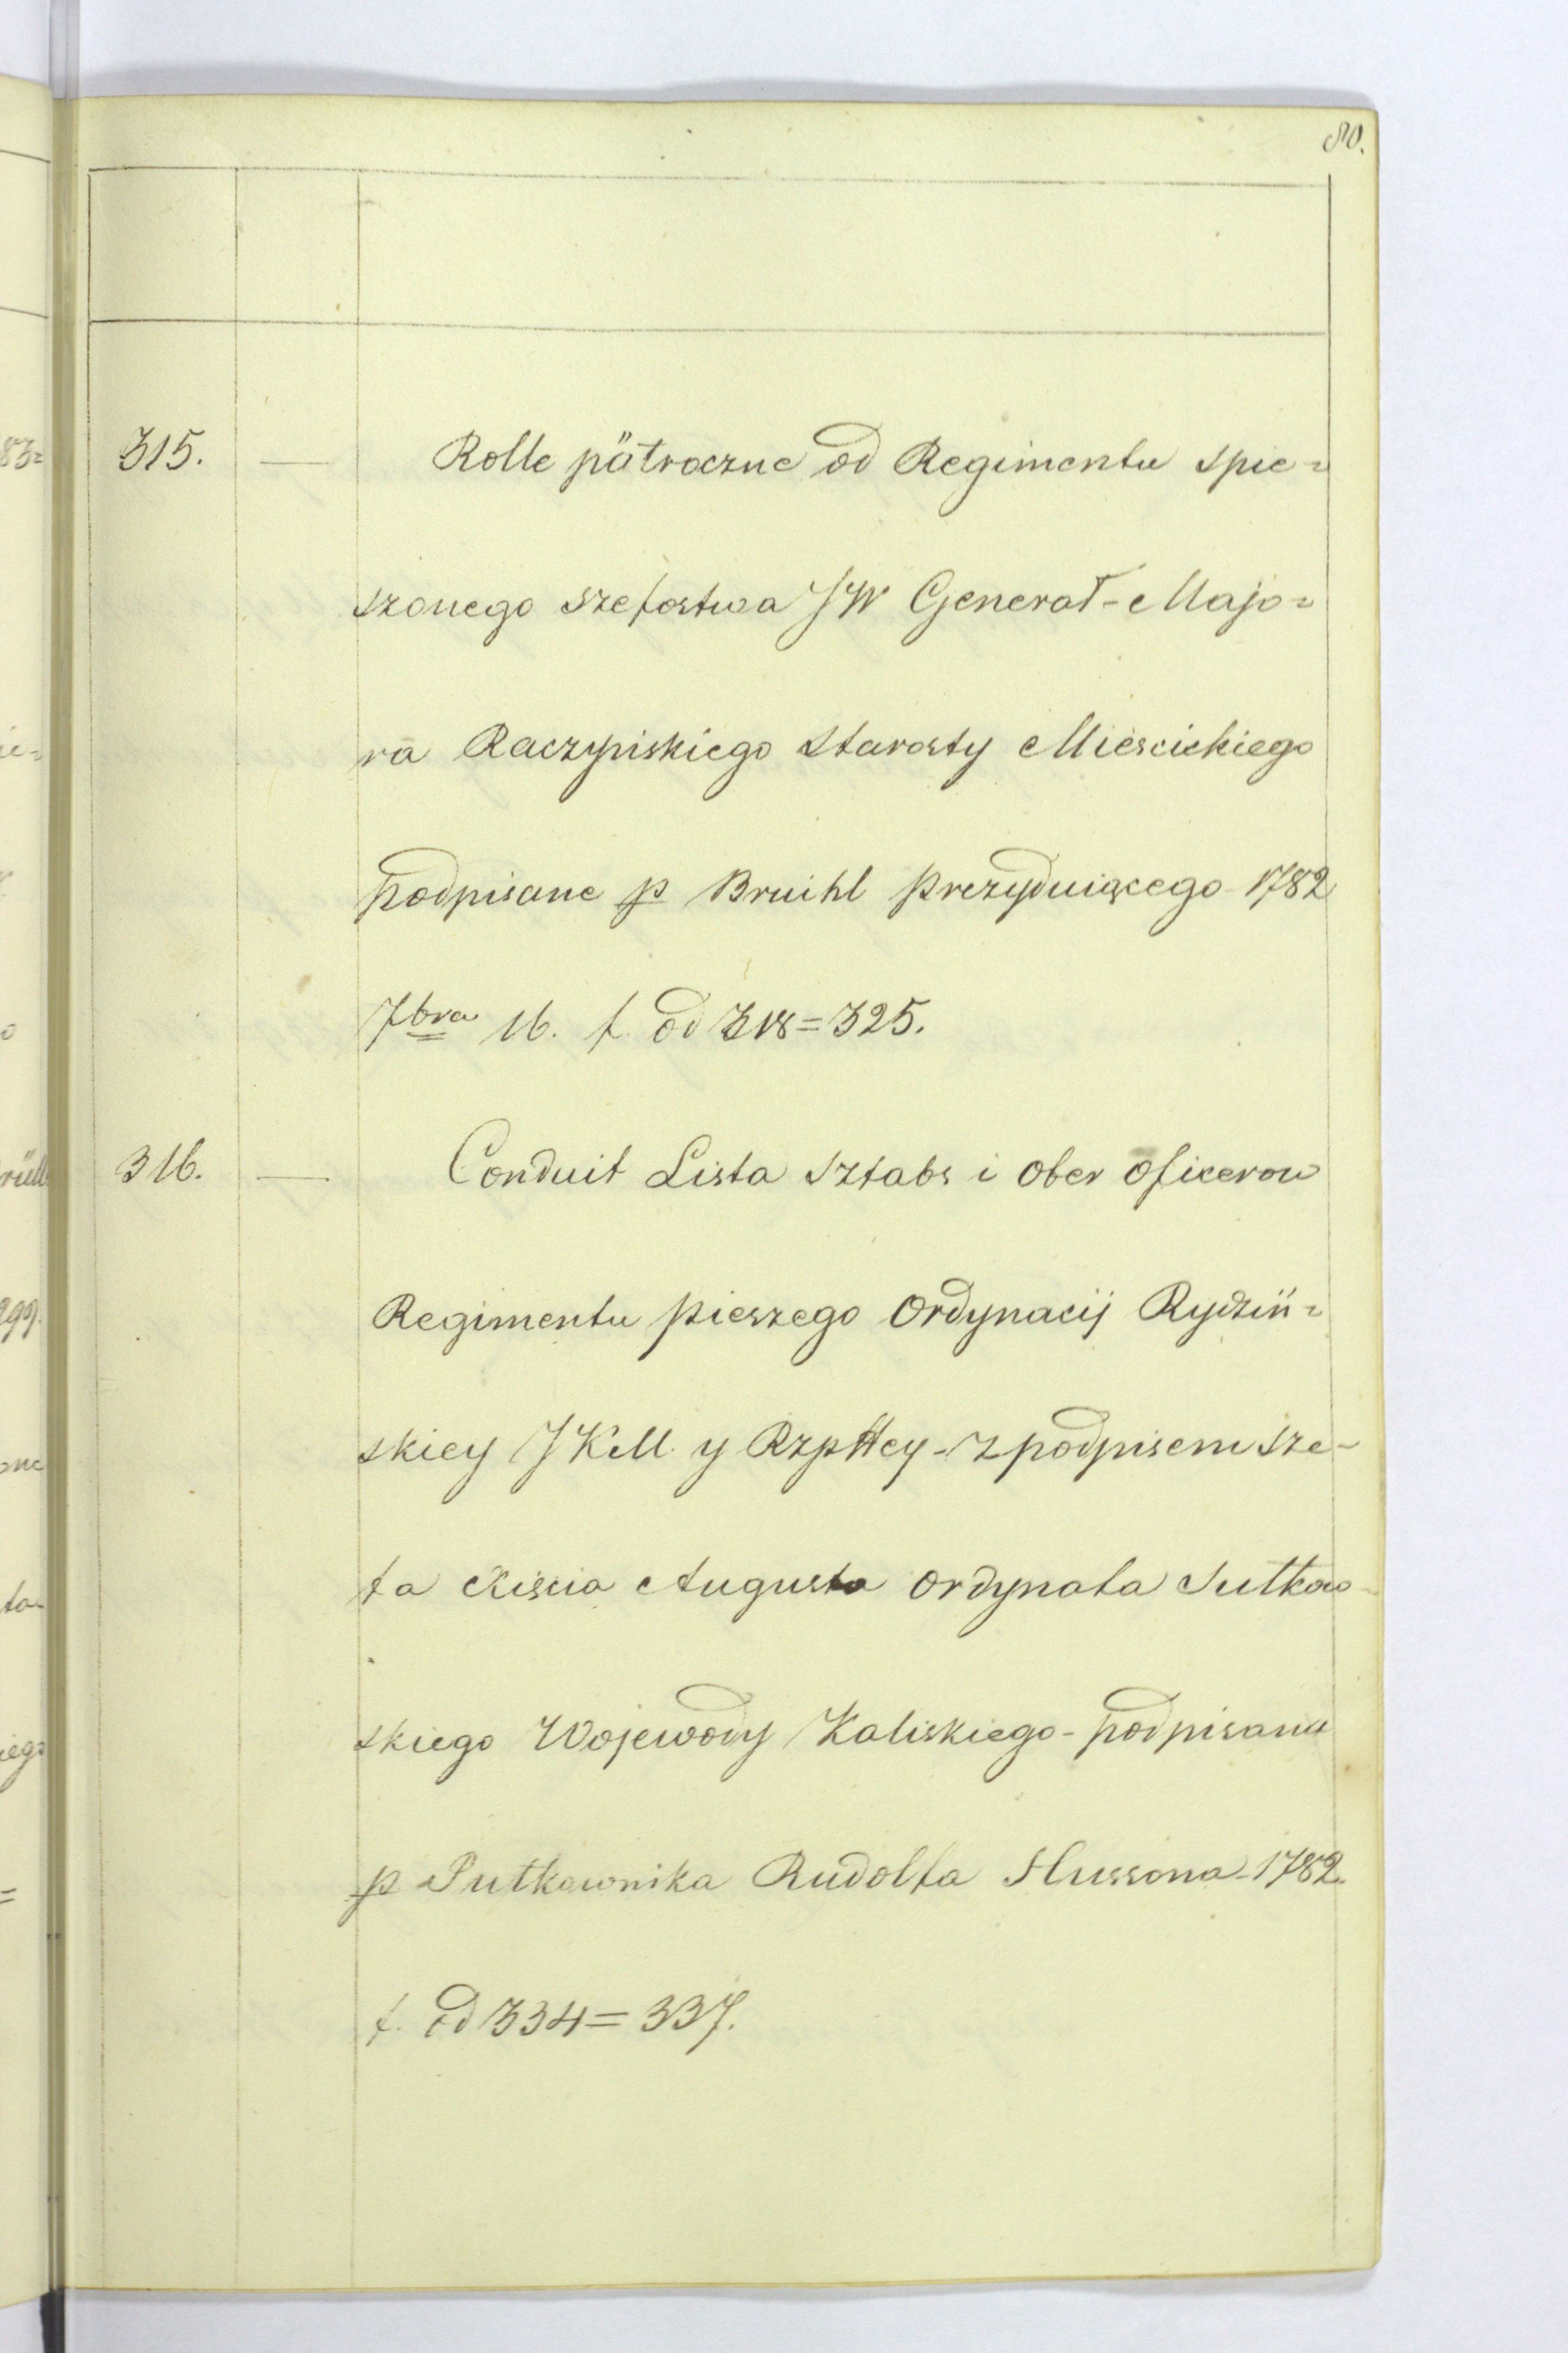 80.
315. — Rolle pätroczne od Regimentu spie=
szonego szefostwa JW Generał-Majo=
ra Raczyńskiego Starosty Mieścickiego
podpisane p Bruihl prezyduiącego 1782
7bra 16. f. od 318=325.
316. — Conduit Lista Sztabs i Ober Oficerow
Regimentu pieszego Ordynacij Rydziń=
skiey JKM. y Rzpttey - z podpisem Sze-
fa Xiścia Augusta Ordynata Sułkow-
skiego Wojewody Kaliskiego - podpisana
p Pułkownika Rudolfa Hussona - 1782.
f. od 334=337.